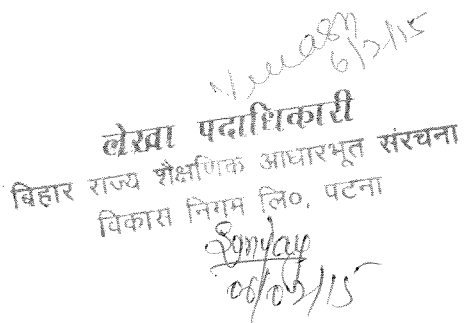 6/2/15
लेखा पदाधिकारी
बिहार राज्य शैक्षणिक आधारभूत संरचना
विकास निगम लि०, पटना
Sanjay
06/02/15